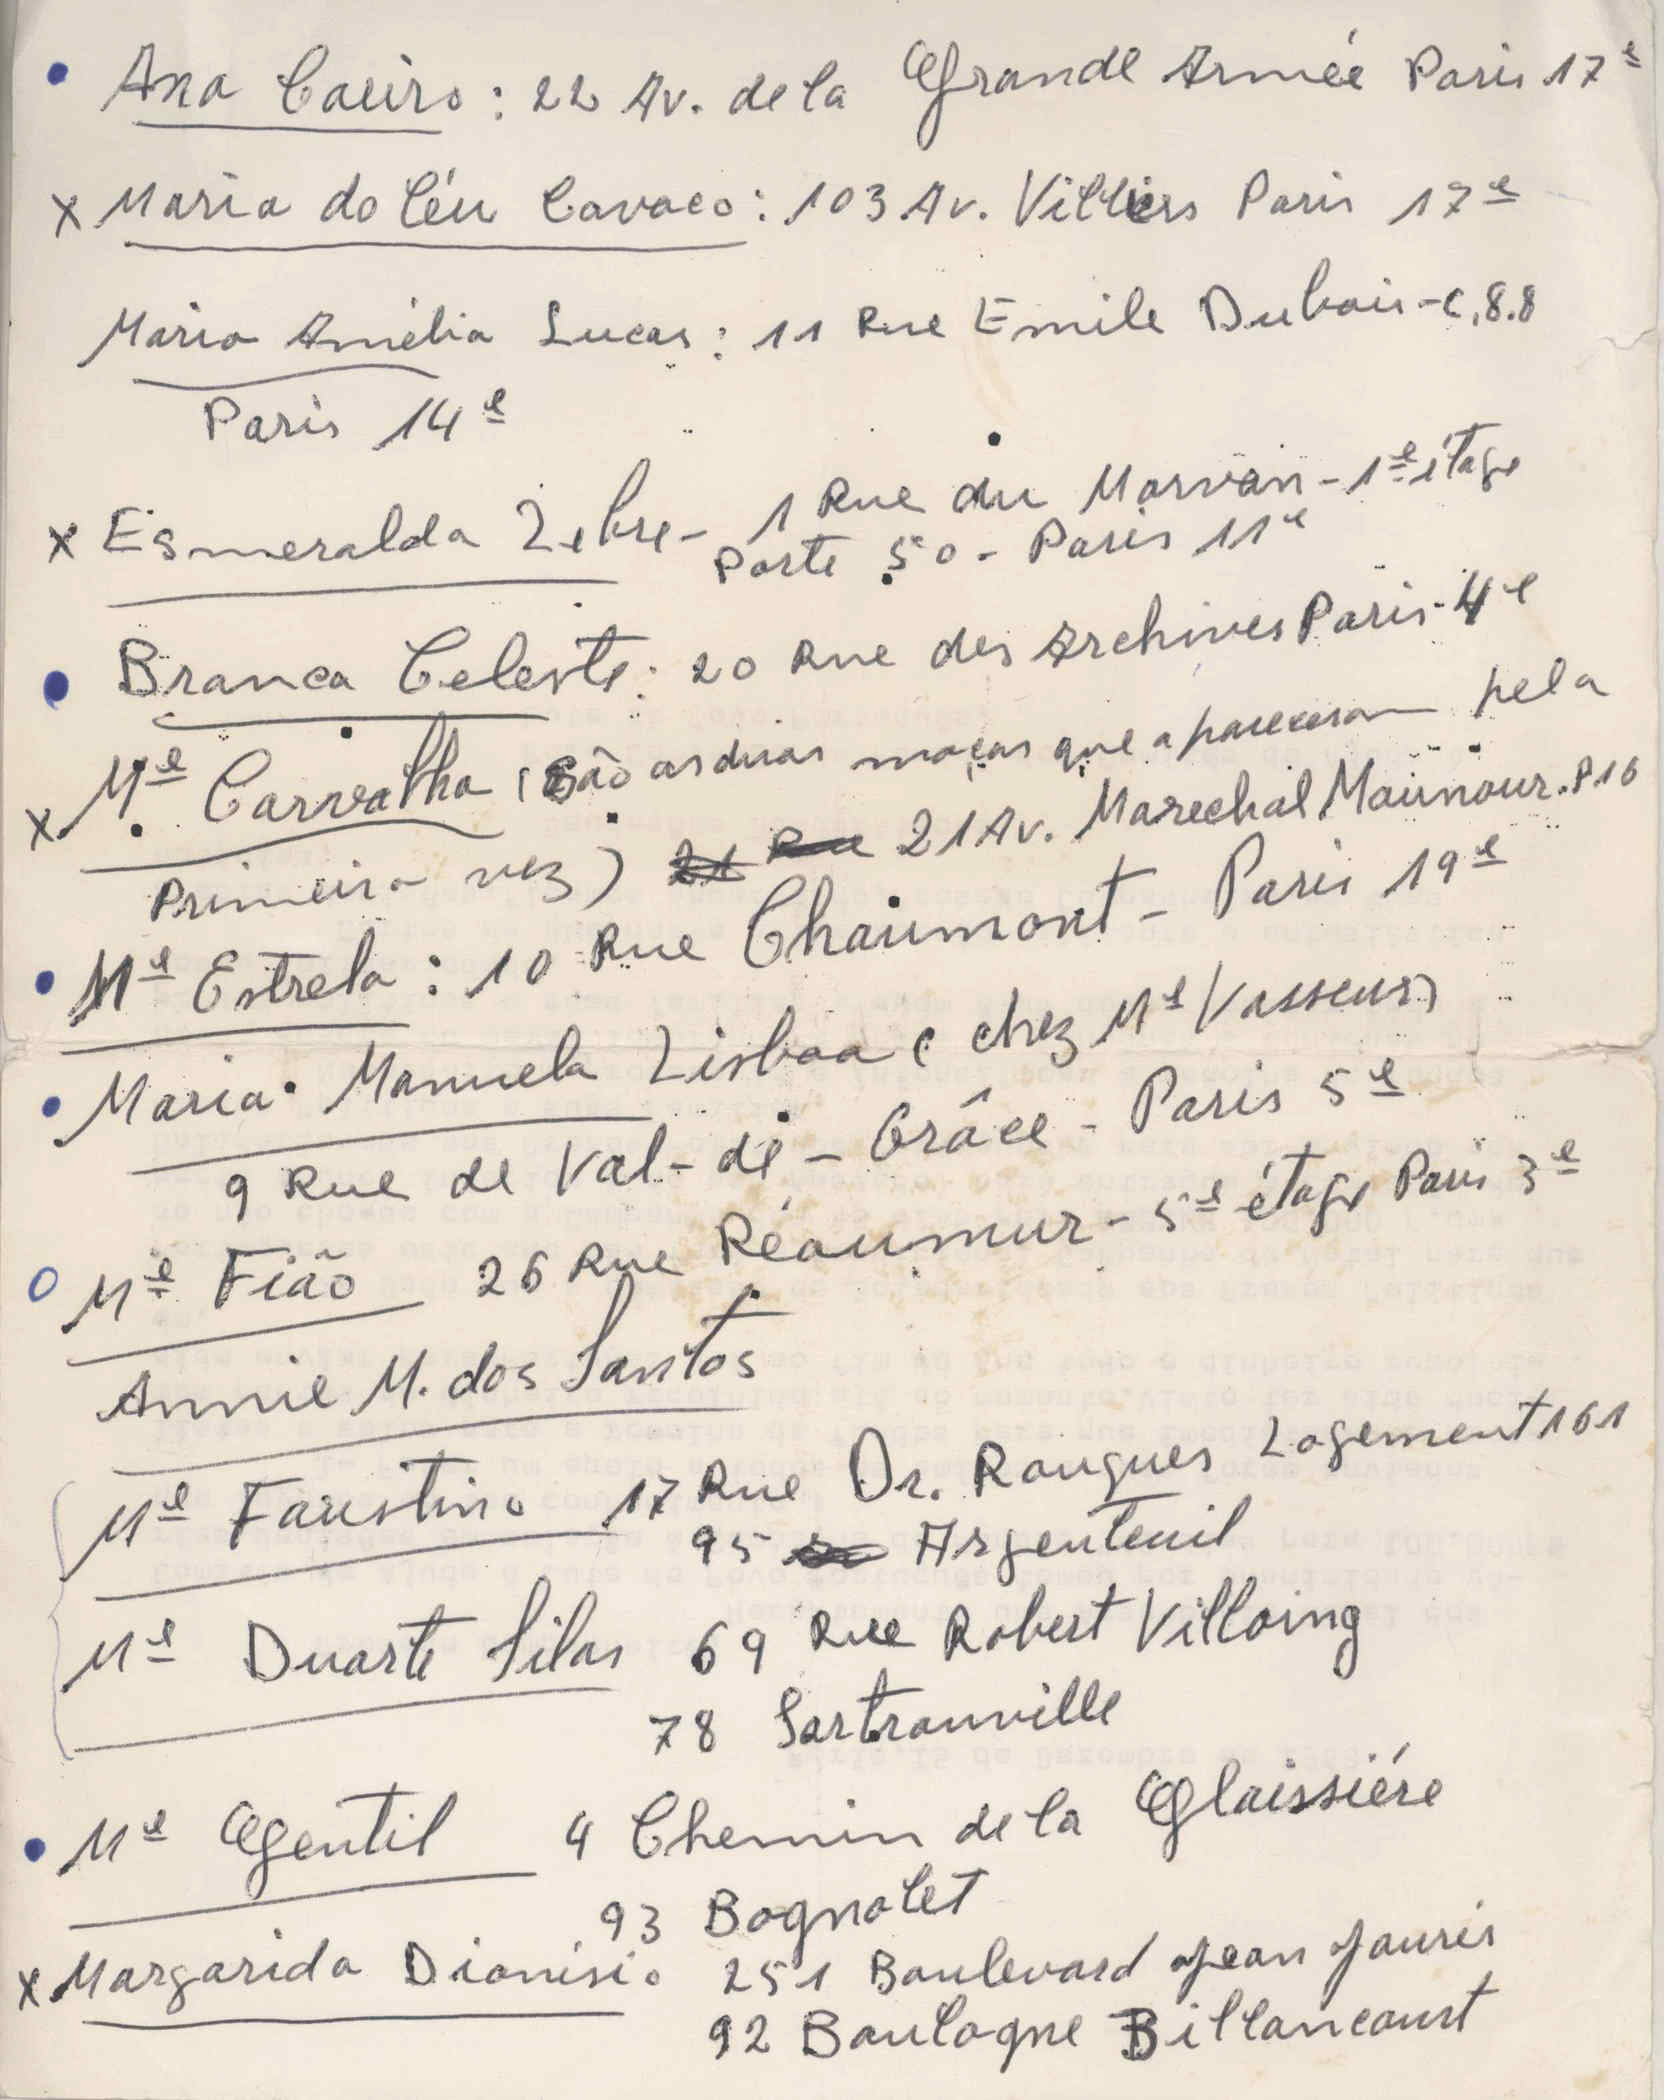 • Ana Caeiro: 22 Av. de la Grande Armée Paris 17e
x Maria do Céu Cavaco: 103 Av. Villiers Paris 17e
Maria Amélia Lucas: 11 Rue Emile Dubois - C.8.8
Paris 14e
x Esmeralda Zebre - 1 Rue du Morvan - 1e étage
Porte 50 - Paris 11e
• Branca Celeste: 20 Rue des Archives Paris - 4e
x Me Carvalho (São as duas moças que apareceram pela
primeira vez) 21 Rue 21 Av. Marechal Maunour. P.16
• Me Estrela: 10 Rue Chaumont - Paris 19e
• Maria Manuela Lisboa (chez Me Vasseur)
9 Rue de Val-de-Grâce - Paris 5e
o Me Fião 26 Rue Réaumur - 5e étage Paris 3e
Annie M. dos Santos
Me Faustino 17 Rue Dr. Rougues Logement 161
95 Argenteuil
Me Duarte Silas 69 Rue Robert Villoing
78 Sartrouville
• Me Gentil 4 Chemin de la Glaissiére
93 Bagnolet
x Margarida Dionísio 251 Boulevard Jean Jaurés
92 Boulogne Billancourt